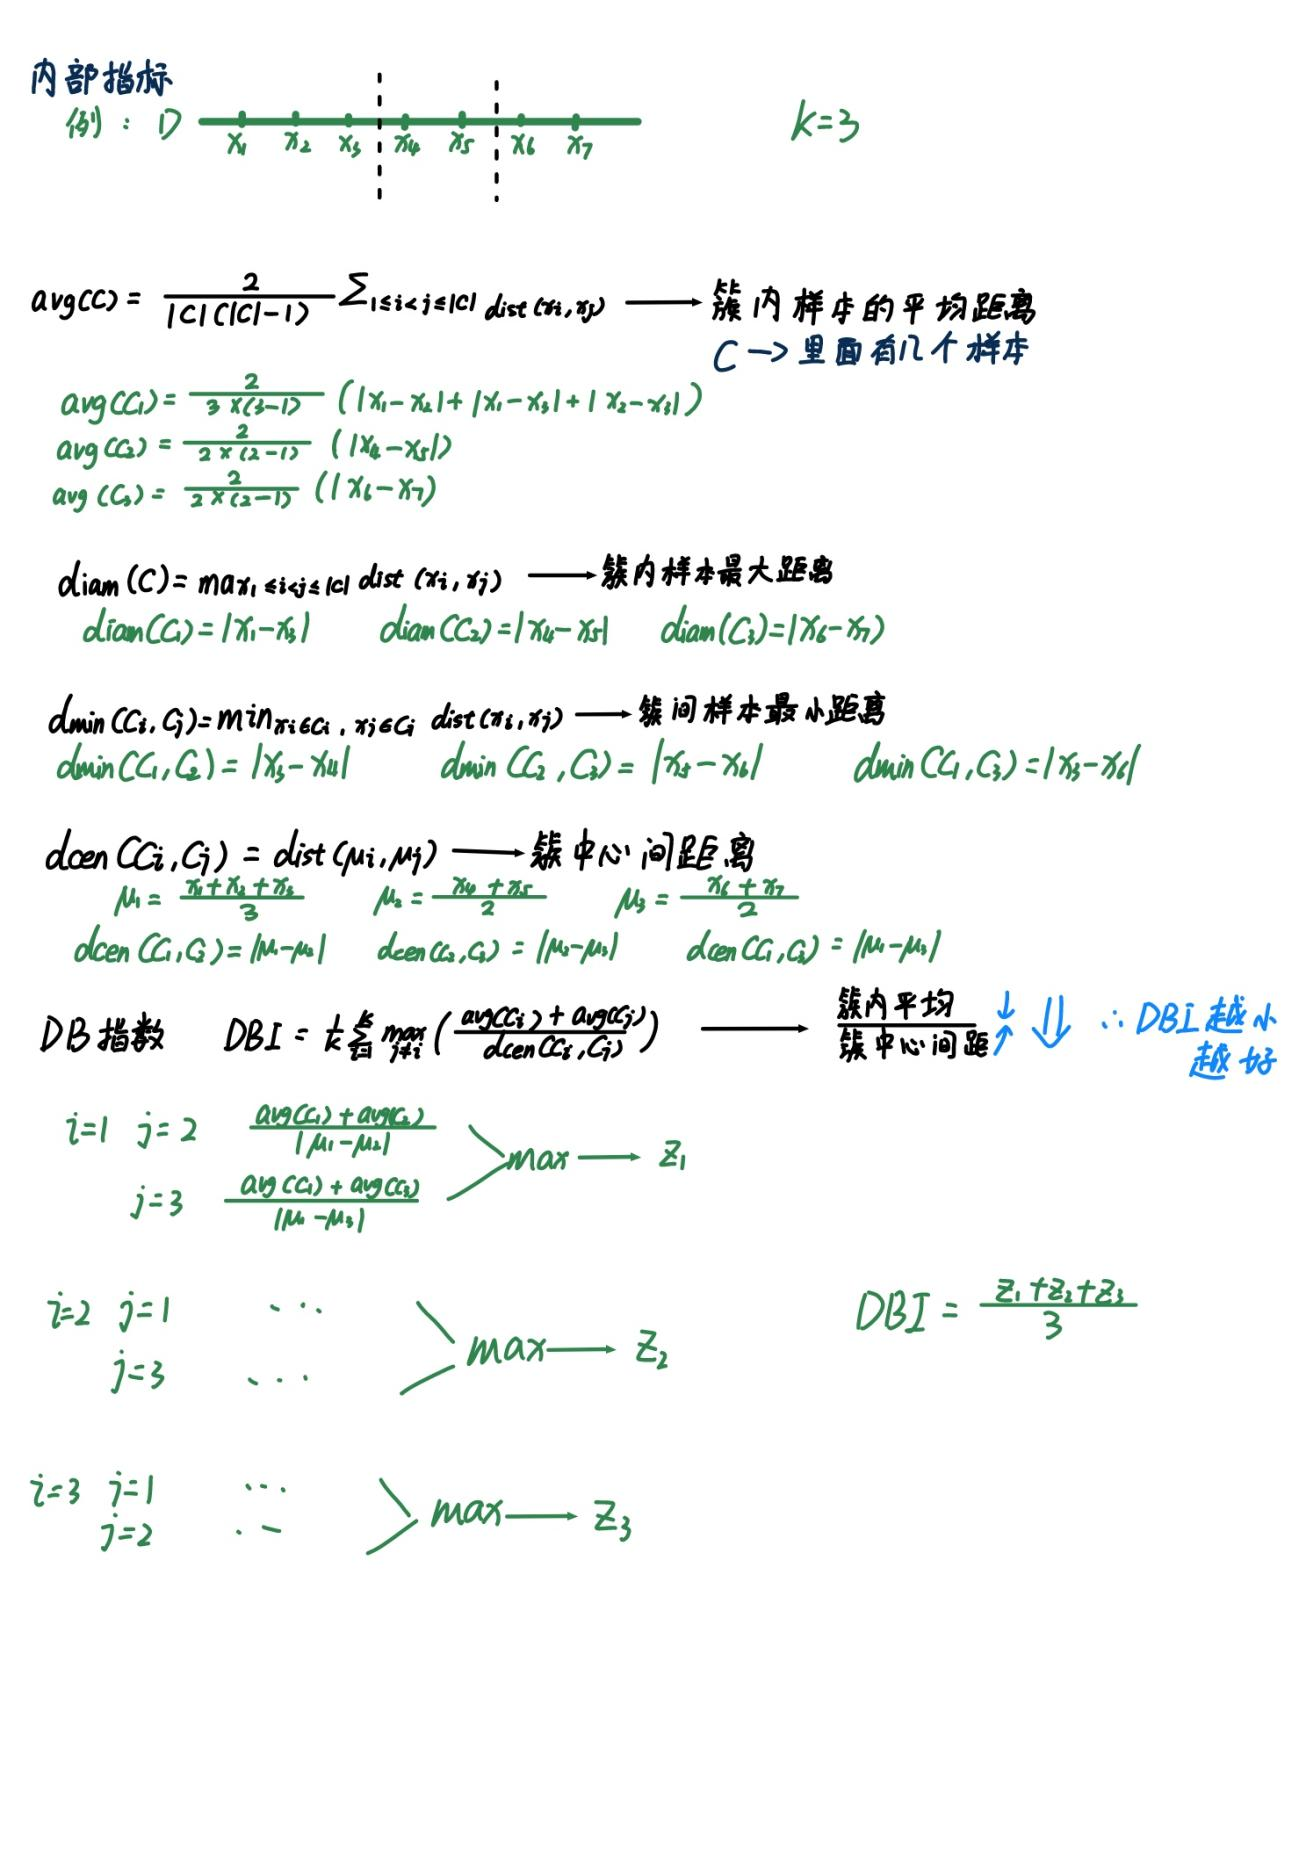 内部指标
例：D x₁ x₂ x₃ x₄ x₅ x₆ x₇ k=3
avg(C) = 2/(|C|(|C|-1)) Σ_{1≤i<j≤|C|} dist(xi,xj) ⟶ 簇内样本的平均距离
C → 里面有几个样本
avg(C₁) = 2/(3×(3-1)) (|x₁-x₂|+|x₁-x₃|+|x₂-x₃|)
avg(C₂) = 2/(2×(2-1)) (|x₄-x₅|)
avg(C₃) = 2/(2×(2-1)) (|x₆-x₇)
diam(C) = max_{1≤i<j≤|C|} dist(xi,xj) ⟶ 簇内样本最大距离
diam(C₁)=|x₁-x₃| diam(C₂)=|x₄-x₅| diam(C₃)=|x₆-x₇)
dmin(Ci,Cj)=min_{xi∈Ci,xj∈Cj} dist(xi,xj) ⟶ 簇间样本最小距离
dmin(C₁,C₂)=|x₃-x₄| dmin(C₂,C₃)=|x₅-x₆| dmin(C₁,C₃)=|x₃-x₆|
dcen(Ci,Cj) = dist(μi,μj) ⟶ 簇中心间距离
μ₁ = (x₁+x₂+x₃)/3 μ₂ = (x₄+x₅)/2 μ₃ = (x₆+x₇)/2
dcen(C₁,C₂)=|μ₁-μ₂| dcen(C₂,C₃)=|μ₂-μ₃| dcen(C₁,C₃)=|μ₁-μ₃|
DB指数 DBI = 1/k Σ_{i=1}^{k} max_{j≠i} ((avg(Ci)+avg(Cj))/dcen(Ci,Cj)) ⟶ 簇内平均/簇中心间距 ↓ ↑ ⇓ ∴ DBI越小
越好
i=1 j=2 (avg(C₁)+avg(C₂))/|μ₁-μ₂|
max ⟶ z₁
j=3 (avg(C₁)+avg(C₃))/|μ₁-μ₃|
i=2 j=1 ...
max ⟶ z₂ DBI = (z₁+z₂+z₃)/3
j=3 ...
i=3 j=1 ...
max ⟶ z₃
j=2 ...